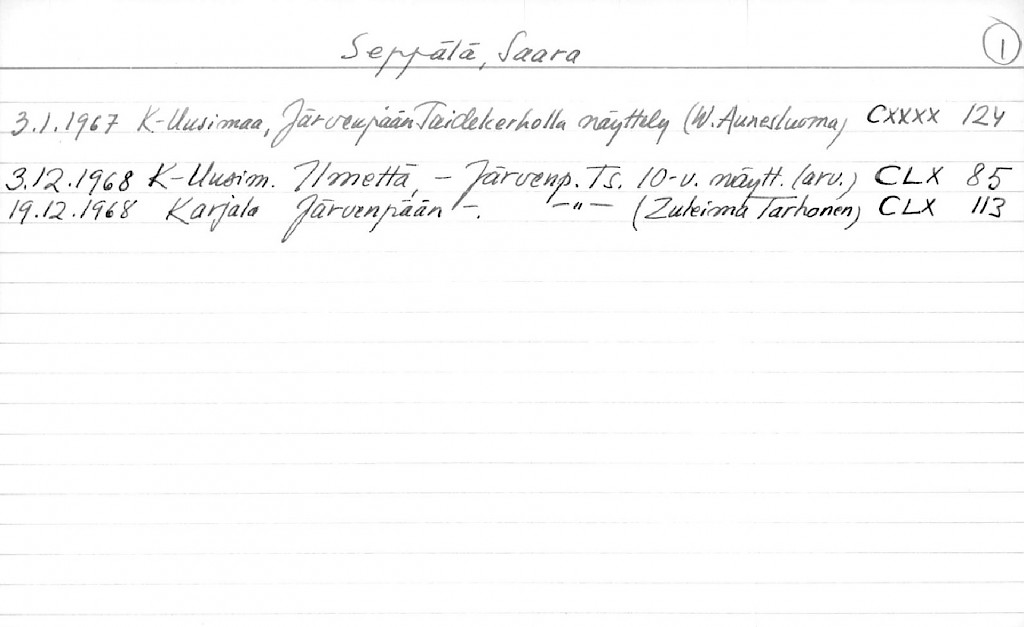 Seppälä, Saara 1
3.1.1967 K-Uusimaa, Järvenpään Taidekerholla näyttely (W. Aunesluoma) CXXXX 124
3.12.1968 K-Uusim. Ilmettä, - Järvenp. Ts. 10-v. näytt. (arv.) CLX 85
19.12.1968 Karjala Järvenpään -. -"- (Zuleima Tarhonen) CLX 113